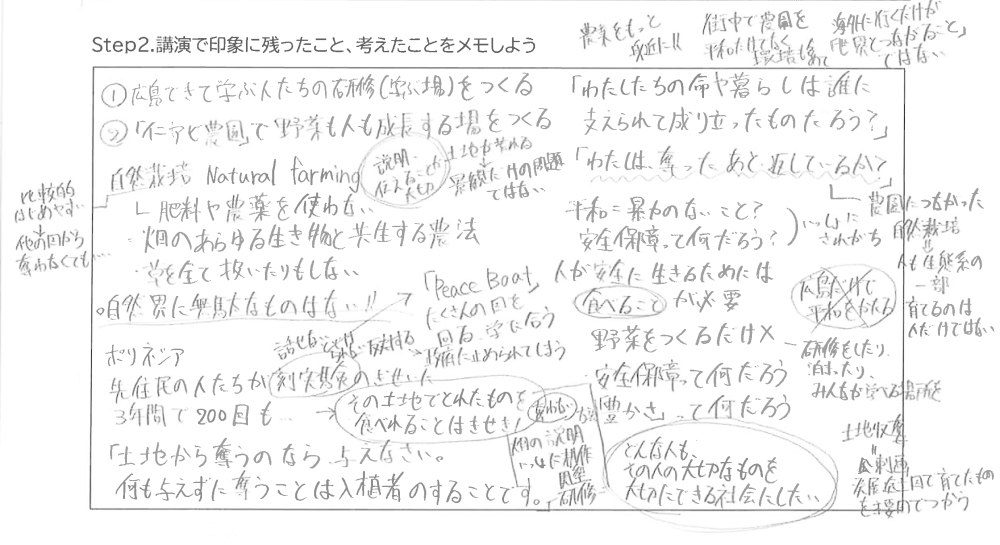 Step2.講演で印象に残ったこと、考えたことをメモしよう
農業をもっと
身近に!!
街中で農園を
平和だけでなく
海外に行くだけが
「世界とつながること」
ではない
①広島できて学ぶ人たちの研修(学ぶ場)をつくる
②「仁アと農園」で野菜も人も成長する場をつくる
自然栽培 Natural farming
説明・
伝えることが
大切
土地が荒れる
景観だけの問題
ではない
比較的
はじめやすい
他の国から
奪わなくても…
└肥料や農薬を使わない
・畑のあらゆる生き物と共生する農法
・草を全て抜いたりもしない
。自然界に無駄なものはない!!
「Peace Boat」
たくさんの国を
回る、学に合う
ポリネシア
先住民の人たちが
3年間で200回も…
→その土地でとれたものを
食べれることはきせき!
「土地から奪うのなら、与えなさい。
何も与えずに奪うことは入植者のすることです。
畑の説明
研修
「わたしたちの命や暮らしは誰に
支えられて成り立ったものだろう?」
「わたしは、奪ったあと返しているか?」
農園につながった
自然栽培
人も生態系の
一部
育てるのは
人だけではない
平和=暴力のないこと?
安全保障って何だろう?
いっしょに
されがち
人が安全に生きるためには
食べること が必要
広島だけで
平和をかたる
野菜をつくるだけ×
研修をしたり、
泊まったり、
みんなが学べる場所を
・安全保障って何だろう
・豊かさ」って何だろう
どんな人も、
その人の大切なものを
大切にできる社会にしたい
土地収奪
=
企業が
を採用でつかう